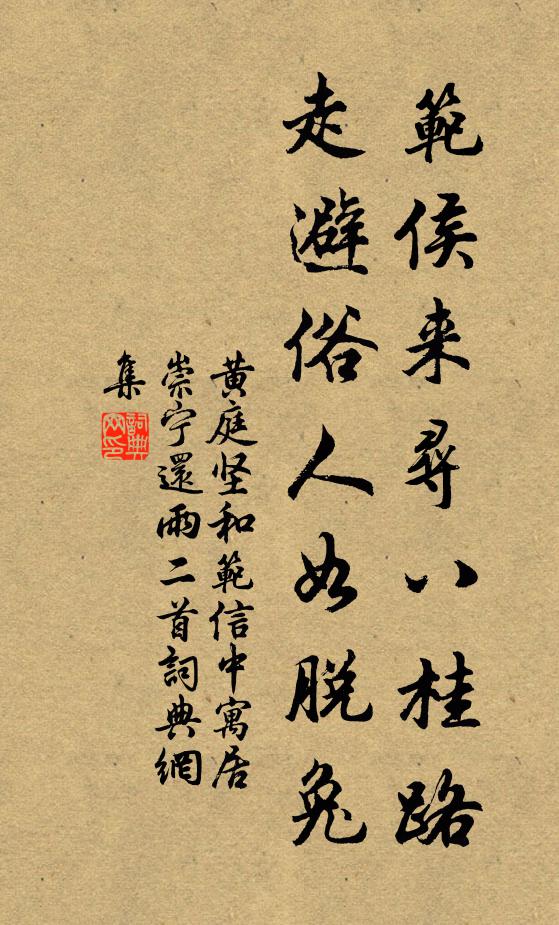 範侯来尋八桂路
走避俗人如脱兔
黄庭坚和範信中寓居
崇宁還雨二首詞典網
集
詞典
网印